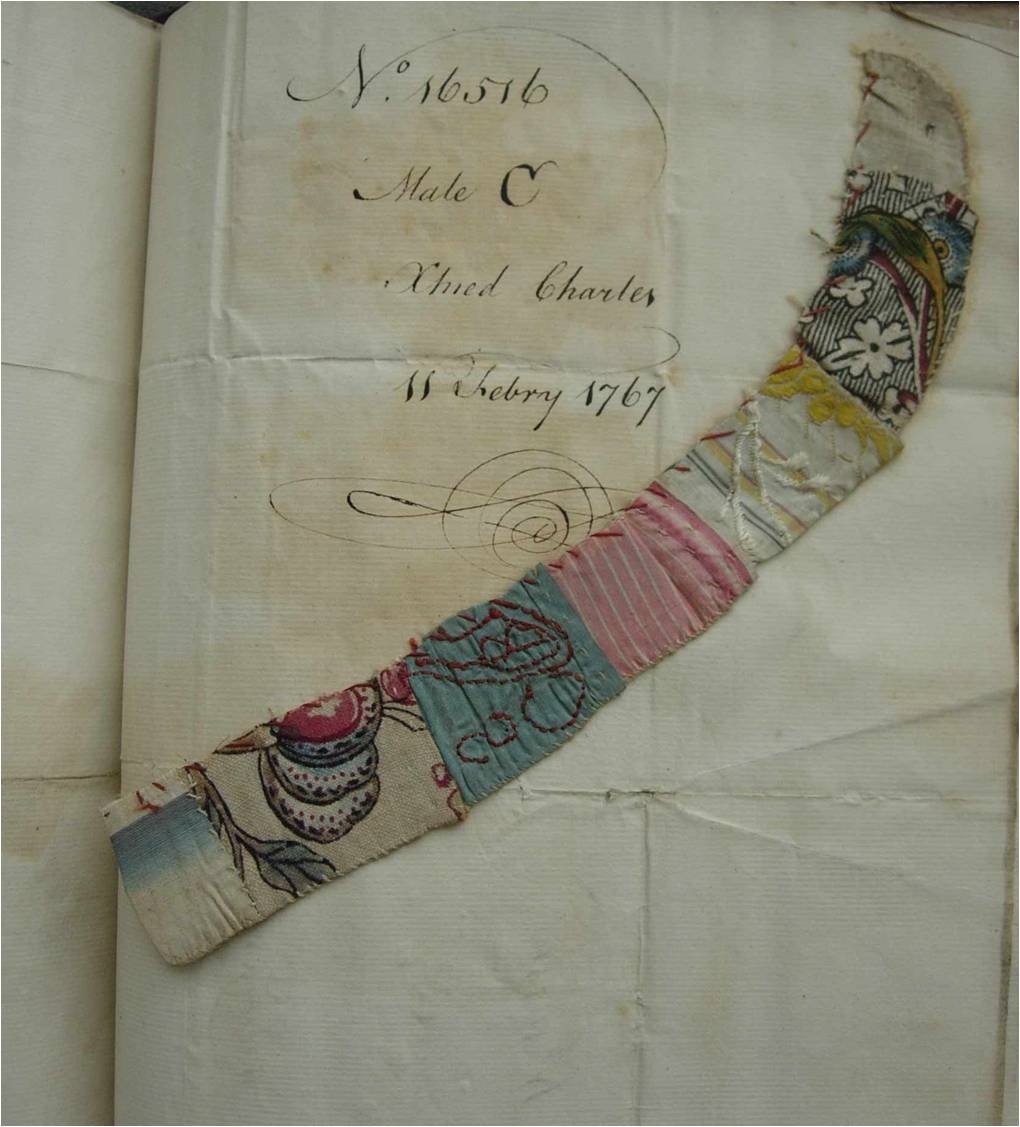 No. 16516
Male C
Xhied Charles
11 Febry 1767